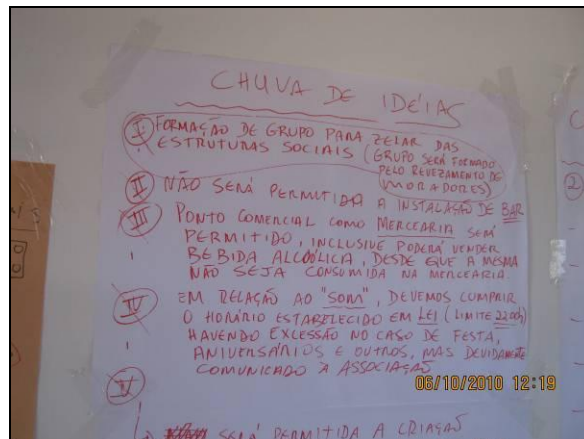 CHUVA DE IDÉIAS
I FORMAÇÃO DE GRUPO PARA ZELAR DAS
ESTRUTURAS SOCIAIS (GRUPO SERÁ FORMADO
PELO REVEZAMENTO DE
MORADORES)
II NÃO SERÁ PERMITIDA A INSTALAÇÃO DE BAR
III PONTO COMERCIAL COMO MERCEARIA SERÁ
PERMITIDO, INCLUSIVE PODERÁ VENDER
BEBIDA ALCOÓLICA, DESDE QUE A MESMA
NÃO SEJA CONSUMIDA NA MERCEARIA.
IV EM RELAÇÃO AO "SOM", DEVEMOS CUMPRIR
O HORÁRIO ESTABELECIDO EM LEI (LIMITE 22:00h)
HAVENDO EXCESSÃO NO CASO DE FESTA,
ANIVERSÁRIOS E OUTROS, MAS DEVIDAMENTE
COMUNICADO A ASSOCIAÇÃO
V
SERÁ PERMITIDA A CRIAÇÃO
2
06/10/2010 12:19